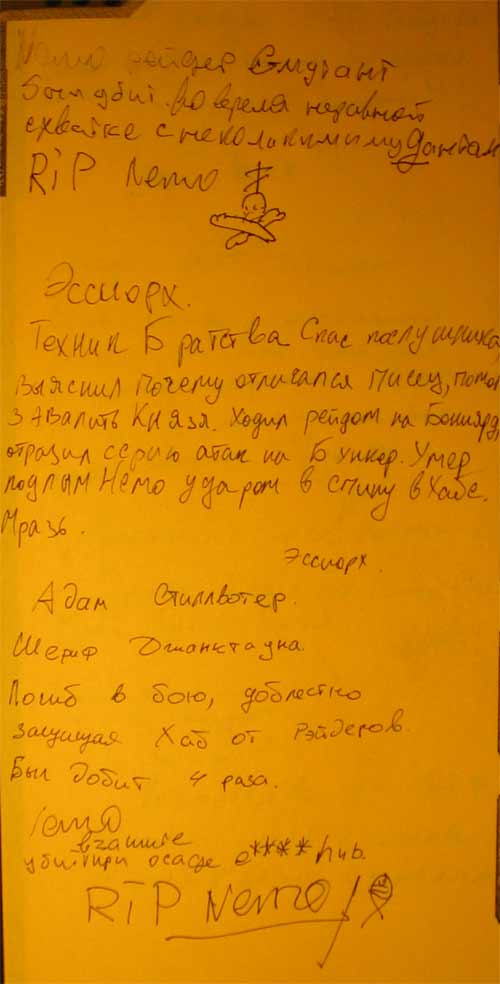 Nemo рейдер Ємутант
был убит во время недавной
схватке с неколикими мудантам
RiP Nemo
Эссиорх.
Техник Братства Спас послушника
Выяснил Почему отличался писец, помог
Завалить Князя. Ходил рейдом на Бонярд,
отразил серию атак на Бункер. Умер
подлым Немо ударом в спину в Хабе.
Мразь.
Эссиорх.
Адам Стиллвотер.
Шериф Джанктауна.
Погиб в бою, доблестно
защищая Хаб от Рэйдеров.
Был добит 4 раза.
Nemo
убит при осаде e**** hub.
RIP Nemo!